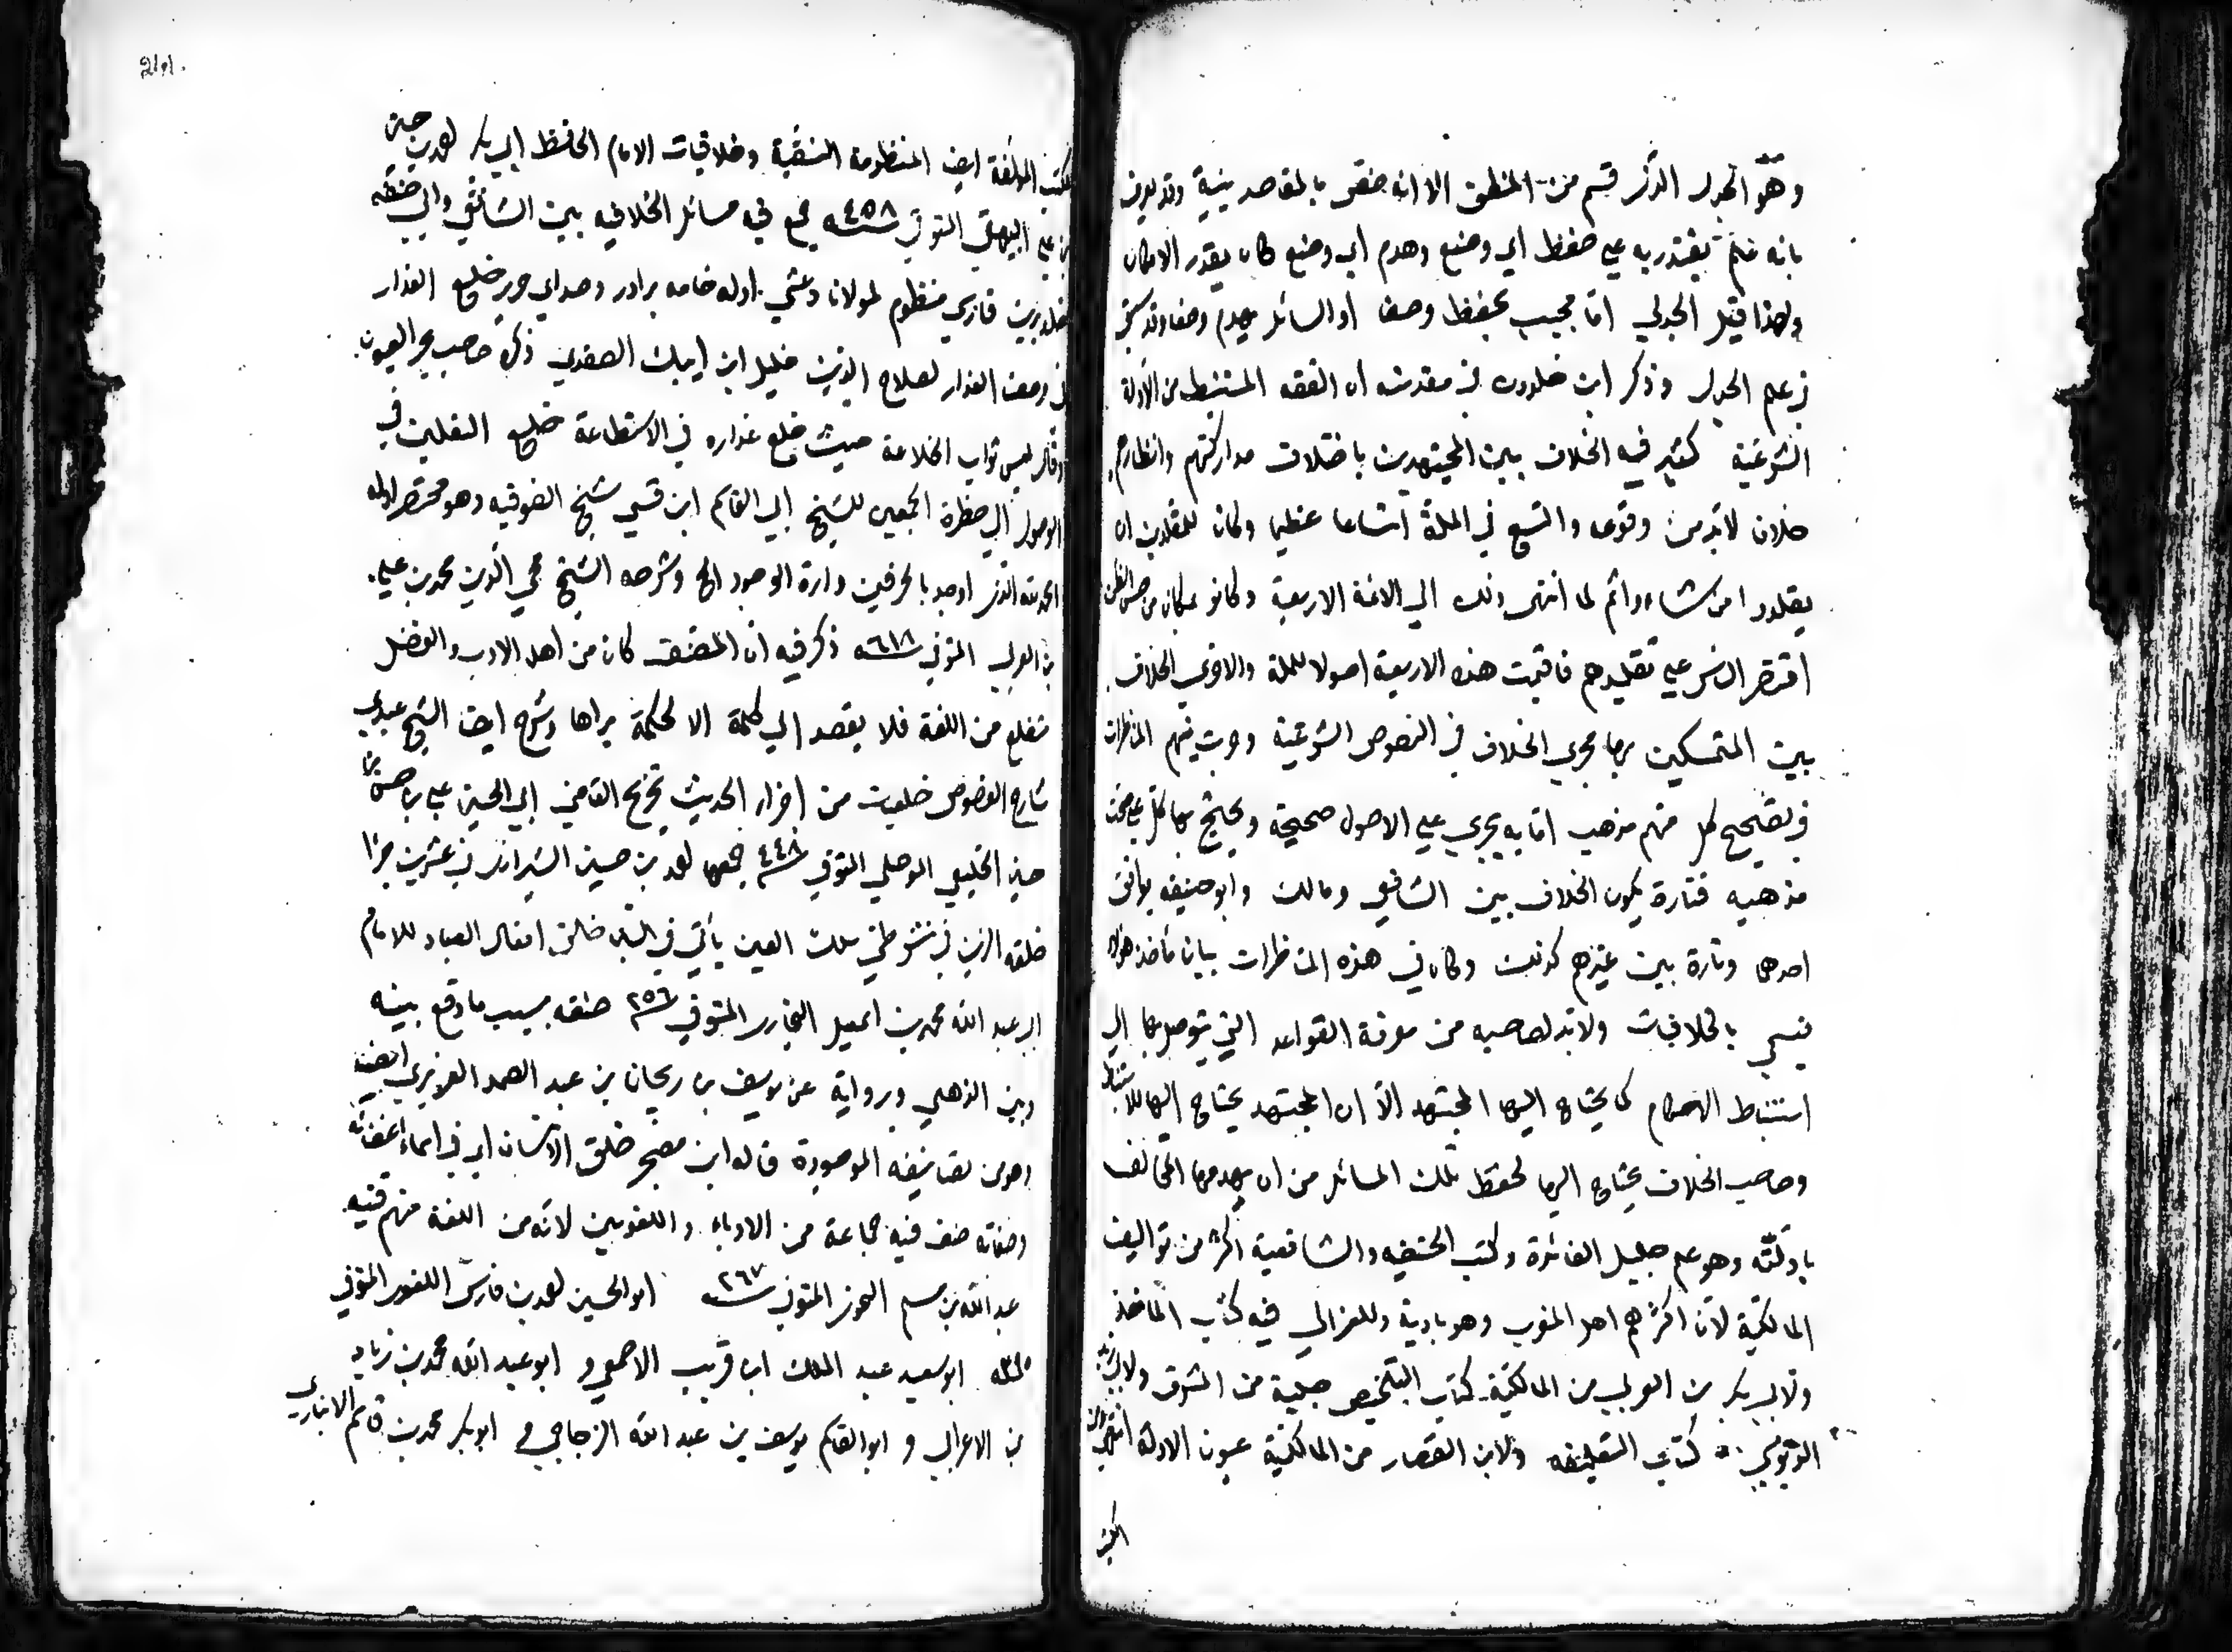 وهو الجدل الذي قسم من المنطق الا انه خص بالمقاصد ينية وقد يعرف
بانه علم يقتدر به علي حفظ اي وضع وهدم اي وضع كان بقدر الامكان
ولهذا قيل الجدلي اما مجيب يحفظ وضعا أو السائل يهدم وضعا وقد سبق
في علم الجدل وذكر ابن خلدون في مقدمته ان الفقه المستنبط من الأدلة
الشرعية كثير فيه الخلاف بين المجتهدين باختلاف مداركهم وانظارهم
خلاف لابد من وقوعه واتسع في الملة اتساعا عظيما وكان للمقلدين ان
يقلدوا من شاء واثم لما انتهى ذلك الي الائمة الاربعة وكانوا بمكان من حسن الظن
اقتصر الناس علي تقليدهم فاقيمت هذه الاربعة اصولا للملة والاجري الخلاف
بين المتمسكين بها مجري الخلاف في النصوص الشرعية وجرت بينهم المناظرات
في تصحيح كل منهم مذهب امامه يجري علي الاصول صحيحة ويحتج بها كل علي صحة
مذهبه فتارة يكون الخلاف بين الشافعي ومالك وابو حنيفه يوافق
احدهما وتارة بين غيرهم كذلك وكان في هذه المناظرات بيان مأخذ هؤلاء
فيسمي بالخلافيات ولابد لصاحبه من معرفة القواعد التي يتوصل بها الي
استنباط الاحكام كما يحتاج اليها المجتهد الّا ان المجتهد يحتاج اليها للاستنباط
وصاحب الخلاف يحتاج اليها لحفظ تلك المسائل من ان يهدمها المخالف
بادلته وهو علم جليل الفائدة وكتب الحنفيه والشافعية اكثر من تواليف
المالكية لان اكثرهم اهل المغرب وهو بادية وللغزالي فيه كتاب المآخذ
ولابي بكر بن العربي من المالكية كتاب التلخيص جلبه من المشرق ولابي زيد
الدبوسي كتاب التعليقه ولابن القصار من المالكية عيون الادلة انتهى
الكتب
الكتب المؤلفة ايضا المنظومة النسفية وخلافيات الامام الحافظ ابي بكر احمد بن حسين
بن علي البيهقي المتوفي سنة ٤٥٨ جمع في مسائل الخلافيه بين الشافعي وابي حنيفه
خلد برين فارسي منظوم لمولانا وحشي اوله خامه برادر وصداي حرير خلع العذار
في وصف العذار لصلاح الدين خليل ابن ايبك الصفدي ذكره صاحب بحر العيون
وقال لبس ثواب الخلاعة حيث خلع عذاره في الاستطاعة خلع النعلين في
الوصول الي حظرة الجمعين للشيخ ابي القاسم ابن قسي شيخ الصوفيه وهو مختصر اوله
الحمد لله الذي اوجد بالحرفين دارة الوجود الخ وشرحه الشيخ محي الدين محمد بن علي
بن العربي المتوفي سنة ٦١٨ ذكر فيه ان المصنف كان من أهل الادب والفضل
متضلع من اللغة فلا يقصد الي كلمة الا لحكمة يراها وشرح ايضا الشيخ عبدي
شارح الفصوص خلعيات من اجزاء الحديث تخريج القاضي ابي الحسين علي بن حسن بن
حسين الخليعي الموصلي المتوفي سنة ٤٤٨ جمعها احمد بن حسين الشيرازي في عشرين جزءا
خلقه الزين في تشوطي سلك العين يأتي في الشين خلق افعال العباد للامام
ابي عبد الله محمد بن اسمعيل البخاري المتوفي سنة ٢٥٦ صنفه بسبب ما وقع بينه
وبين الذهلي ورواية عن يوسف بن ريحان بن عبد الصمد الفربري ايضا
وهو من تصانيفه الموجودة قاله ابن حجر خلق الانسان اي في اسماء اعضائه
وصفاته صنف فيه جماعة من الادباء واللغويين لانه من اللغة منهم قتيبه
عبد الله بن مسلم النحوي المتوفي سنة ٢٦٧ ابو الحسين احمد بن فارس اللغوي المتوفي
سنة ابو سعيد عبد الملك ابن قريب الاصمعي و ابو عبد الله محمد بن زياد
بن الاعرابي و ابو القاسم يوسف بن عبد الله الزجاجي و ابو بكر محمد بن قاسم الانباري